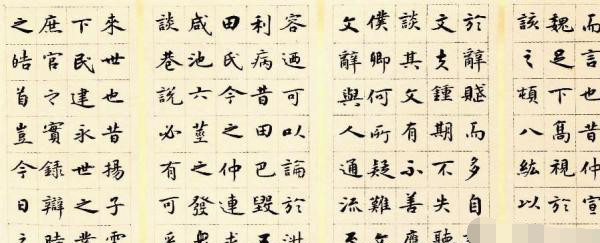 而言也昔仲宣
魏足下高視於
該之頓八紘以
於辭賦而多自
文夫鍾期不失聽
談其文有不善應
僕卿何所疑難文
文辭與人通流至
容迺可以論於
利病昔田巴毀五
田氏今之仲連求
咸池六莖之發
談巷說必有可采
來世也昔揚子雲
下民建永世之業
庶官之實錄辯時
之皓首豈今日之